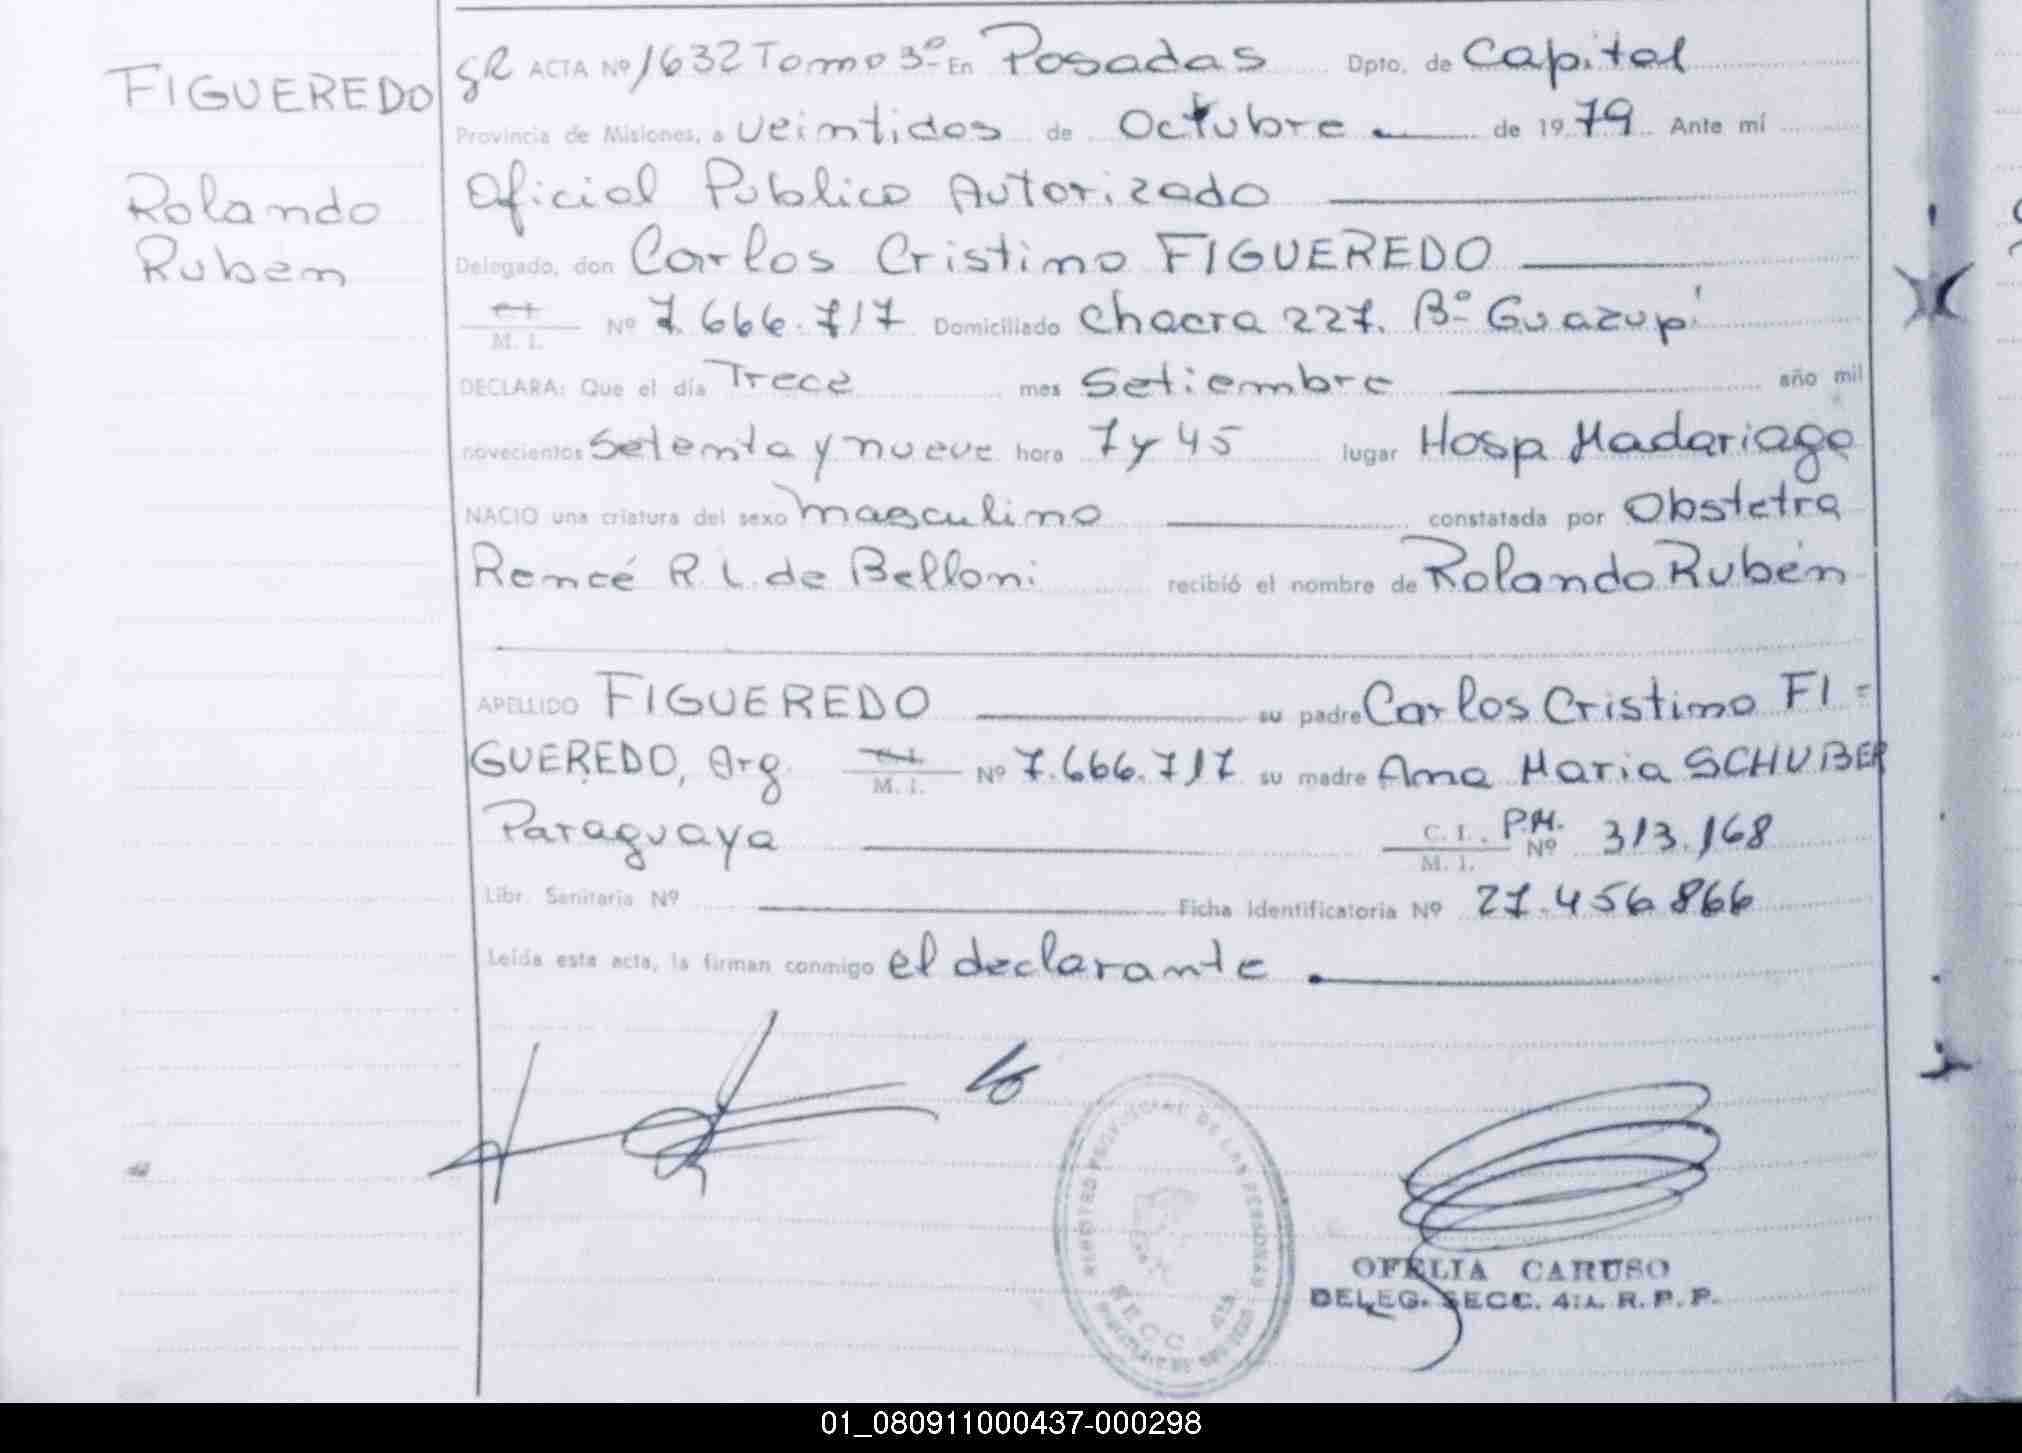 FIGUEREDO
Rolando
Ruben
gR ACTA Nº 1632 Tomo 3º En Posadas Dpto. de Capital
Provincia de Misiones, a veintidos de Octubre de 1979 Ante mí
Oficial Publico Autorizado
Delegado, don Carlos Cristino FIGUEREDO
M. I. Nº 7.666.717 Domiciliado Chacra 227. Bº Guazupí
DECLARA: Que el día Trece mes Setiembre año mil
novecientos setenta y nueve hora 7 y 45 lugar Hosp Madariaga
NACIO una criatura del sexo masculino constatada por Obstetra
Reneé R. L. de Belloni recibió el nombre de Rolando Rubén
APELLIDO FIGUEREDO su padre Carlos Cristino FI=
GUEREDO, Arg. C. I. M. I. Nº 7.666.717 su madre Ana Maria SCHUBER
Paraguaya C. I. M. I. P.M. Nº 313.168
Libr. Sanitaria Nº Ficha Identificatoria Nº 27.456.866
Leída esta acta, la firman conmigo el declarante
REGISTRO PROVINCIAL DE LAS PERSONAS
SECC. 4TA.
OFELIA CARUSO
DELEG. SECC. 4TA. R. P. P.
01_080911000437-000298